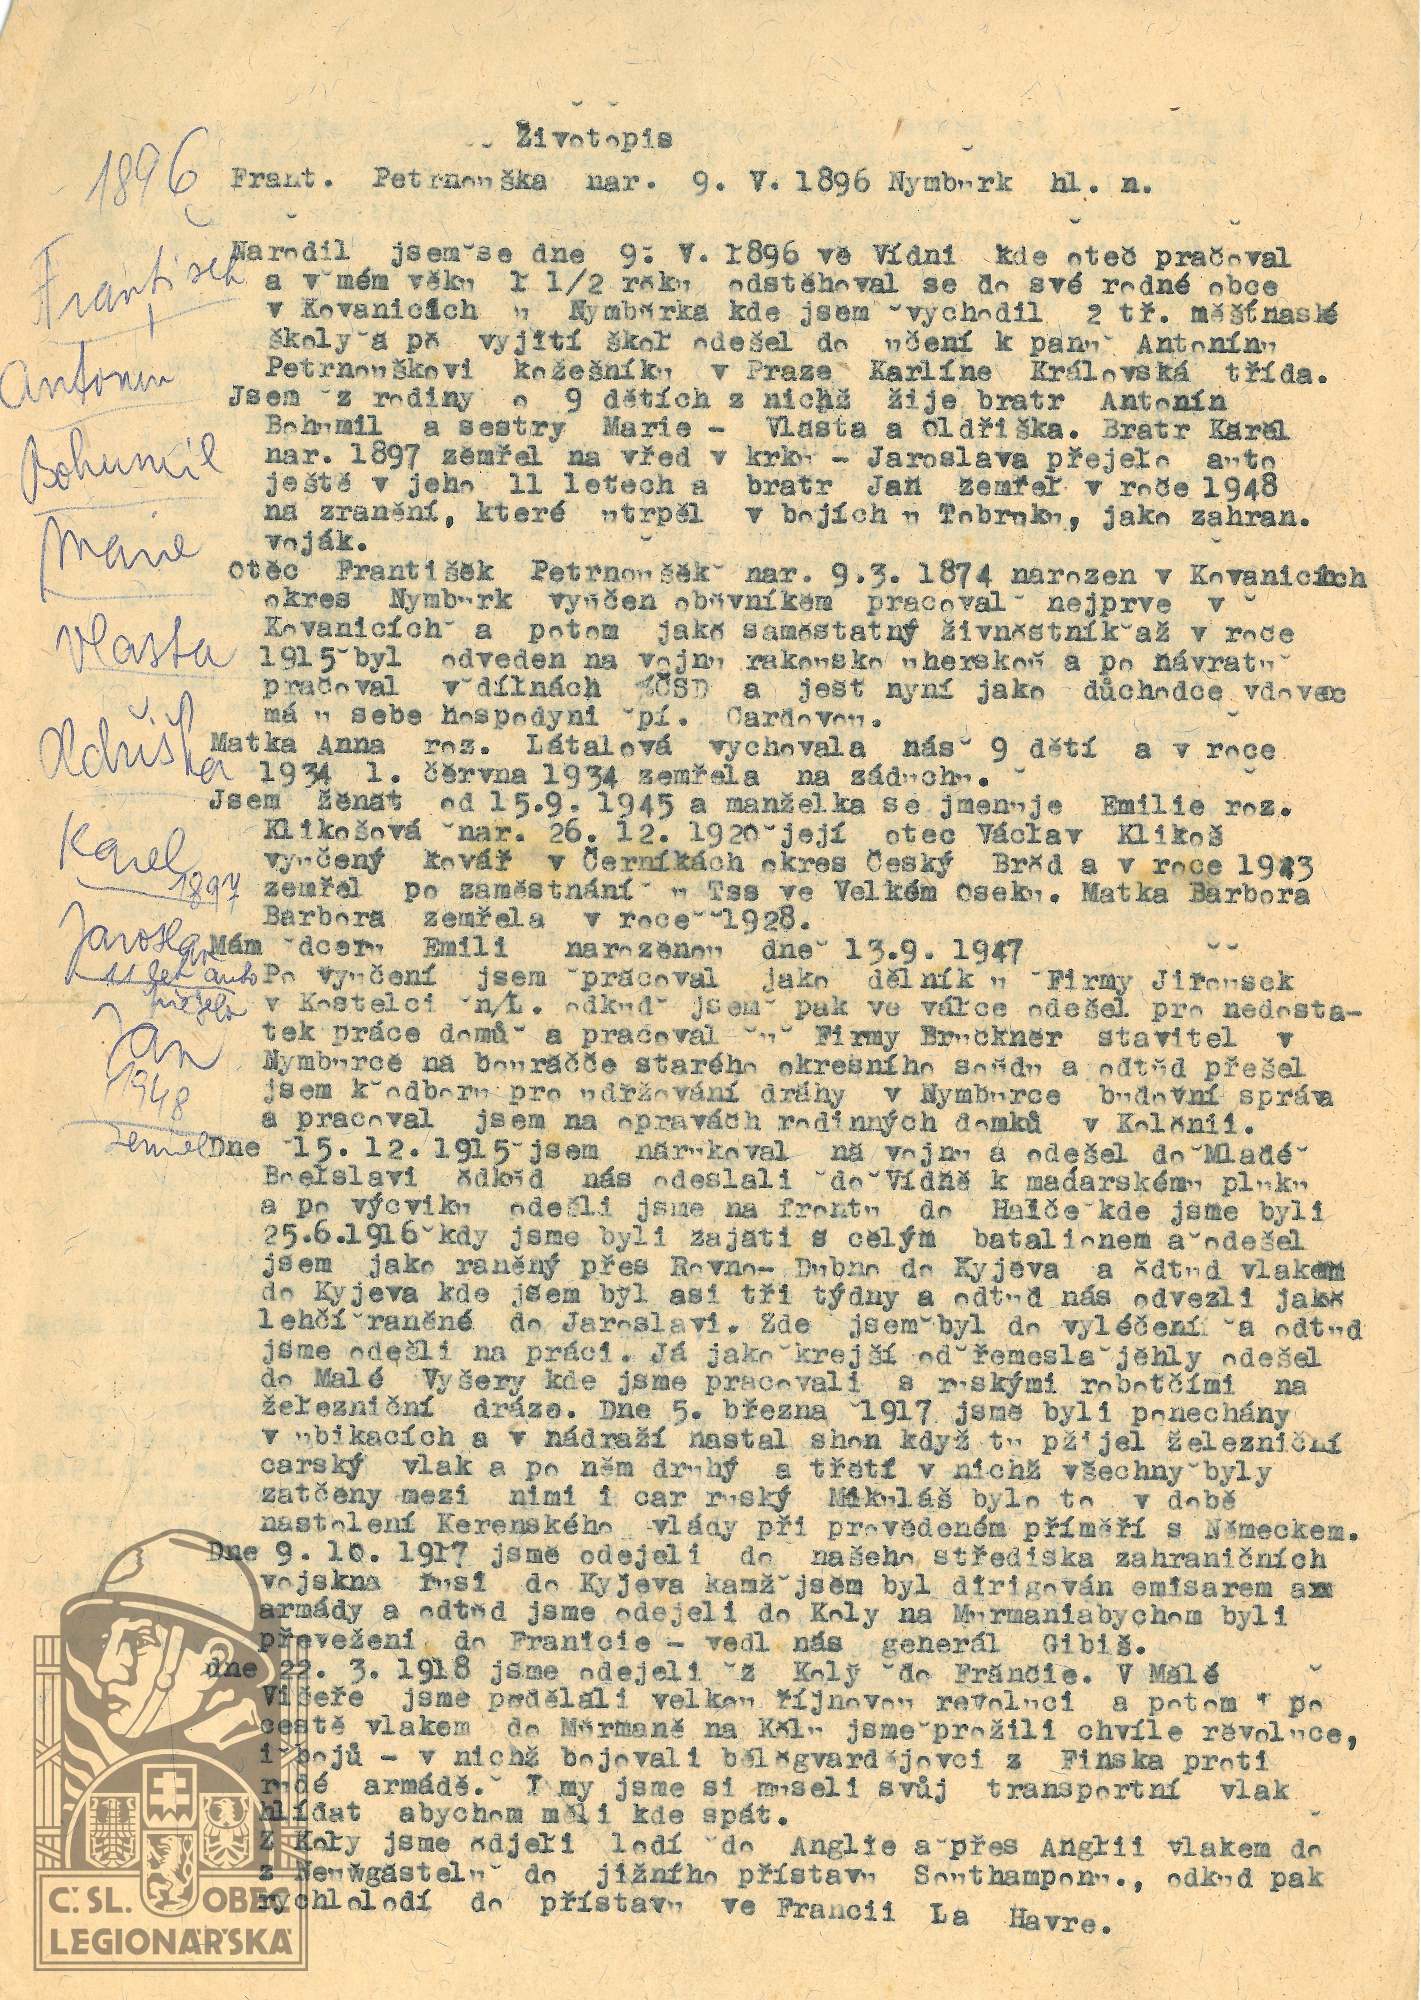 Životopis
Frant. Petrnouška nar. 9. V. 1896 Nymburk hl. n.
1896
František
Antonín
Bohumil
Marie
Vlasta
Oldřiška
Karel
1897
Jaroslav
11 let auto
přejelo
Jan
1948
zemřel
Narodil jsem se dne 9. V. 1896 ve Vídni kde otec pracoval
a v mém věku 1 1/2 roku odstěhoval se do své rodné obce
v Kovanicích u Nymburka kde jsem vychodil 2 tř. měšťnaské
školy a po vyjití škol odešel do učení k panu Antonínu
Petrnouškovi kožešníku v Praze Karlíne Královská třída.
Jsem z rodiny o 9 dětích z nichž žije bratr Antonín
Bohumil a sestry Marie - Vlasta a Oldřiška. Bratr Karel
nar. 1897 zemřel na vřed v krku - Jaroslava přejelo auto
ještě v jeho 11 letech a bratr Jan zemřel v roce 1948
na zranění, které utrpěl v bojích u Tobruku, jako zahran.
voják.
Otec František Petrnoušek nar. 9.3. 1874 narozen v Kovanicích
okres Nymburk vyučen obuvníkem pracoval nejprve v
Kovanicích a potom jako samostatný živnostník až v roce
1915 byl odveden na vojnu rakousko uherskou a po návratu
pracoval v dílnách ČSD a jest nyní jako důchodce vdovec
má u sebe hospodyni pí. Cardovou.
Matka Anna roz. Látalová vychovala nás 9 dětí a v roce
1934 1. června 1934 zemřela na záduchu.
Jsem ženat od 15.9. 1945 a manželka se jmenuje Emilie roz.
Klikošová nar. 26. 12. 1920 její otec Václav Klikoš
vyučený kovář v Černíkách okres Český Brod a v roce 1943
zemřel po zaměstnání u Tss ve Velkém Oseku. Matka Barbora
Barbora zemřela v roce 1928.
Mám dceru Emili narozenou dne 13.9. 1947
Po vyučení jsem pracoval jako dělník u Firmy Jirousek
v Kostelci n/L. odkud jsem pak ve válce odešel pro nedosta-
tek práce domů a pracoval u Firmy Bruckner stavitel v
Nymburce na bouračče starého okresního soudu a odtud přešel
jsem k odboru pro udržování dráhy v Nymburce budovní správa
a pracoval jsem na opravách rodinných domků v Kolonii.
Dne 15. 12. 1915 jsem narukoval na vojnu a odešel do Mladé
Boelslavi odkud nás odeslali do Vídně k maďarskému pluku
a po výcviku odešli jsme na frontu do Haliče kde jsme byli
25.6.1916 kdy jsme byli zajati s celým batalionem a odešel
jsem jako raněný přes Rovno- Dubno do Kyjeva a odtud vlakem
do Kyjeva kde jsem byl asi tři týdny a odtud nás odvezli jako
lehčí raněné do Jaroslavi. Zde jsem byl do vyléčení a odtud
jsme odešli na práci. Já jako krejší od řemesla jehly odešel
do Malé Vyšery kde jsme pracovali s ruskými robotčími na
železniční dráze. Dne 5. března 1917 jsme byli ponechány
v ubikacích a v nádraží nastal shon když tu pžijel železniční
carský vlak a po něm druhý a třetí v nichž všechny byly
zatčeny mezi nimi i car ruský Mikuláš bylo to v době
nastolení Kerenského vlády při provedeném příměří s Německem.
Dne 9. 10. 1917 jsme odejeli do našeho střediska zahraničních
vojskna rusi do Kyjeva kamž jsem byl dirigován emisarem
armády a odtud jsme odejeli do Koly na Murmaniabychom byli
převežení do Franicie - vedl nás generál Gibiš.
dne 22. 3. 1918 jsme odejeli z Koly do Francie. V Malé
Višeře jsme podělali velkou říjnovou revoluci a potom i po
cestě vlakem do Murmaně na Kolu jsme prožili chvíle revoluce,
i bojů - v nichž bojovali bělogvardějovci z Finska proti
rudé armádě. I my jsme si museli svůj transportní vlak
hlídat abychom měli kde spát.
Z Koly jsme odjeli lodí do Anglie a přes Anglii vlakem do
z Neuwgastelu do jižního přístavu Southamponu., odkud pak
rychlolodí do přístavu ve Francii La Havre.
Č.SL. OBEC
LEGIONÁŘSKÁ